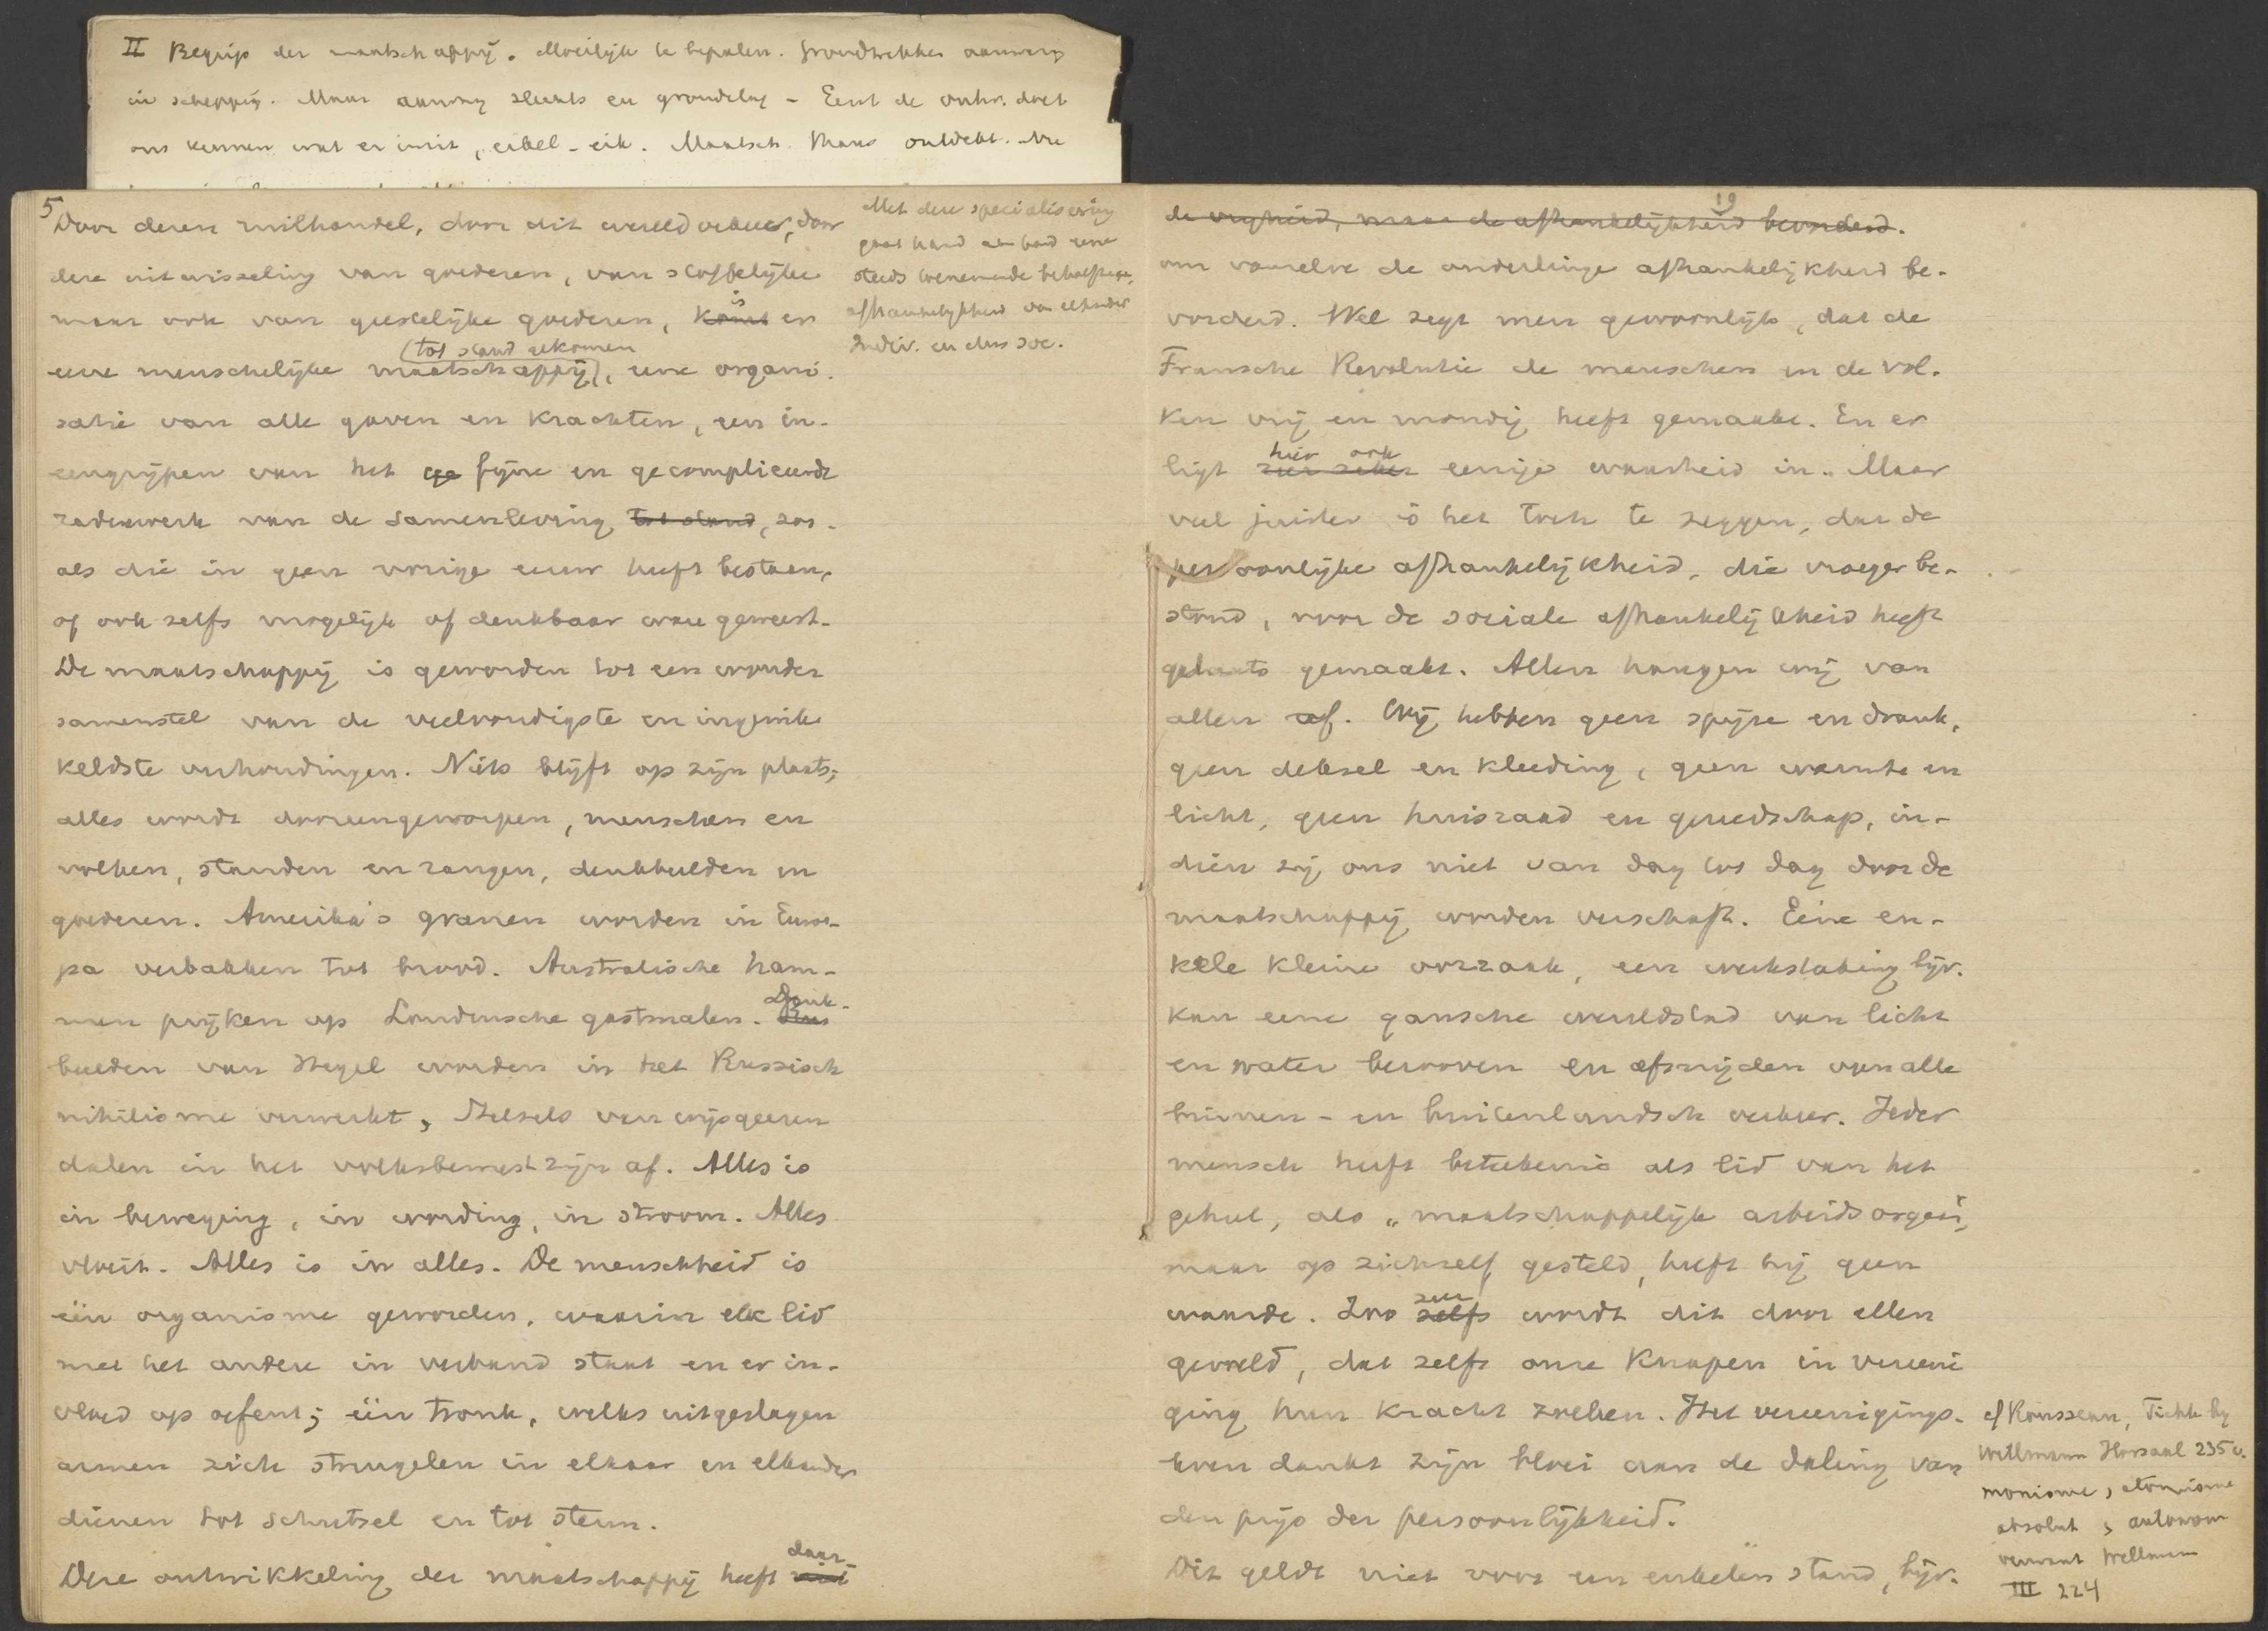 II Begrip der maatschappij. Moeilijk te bepalen. Grondtrekken aanwezig
in schepping. Maar aanweg slechts en grondslag - Eerst de ontw. doet
ons kennen wat er in zit, eikel - eik. Maatsch. thans ontdekt. Nu
5
Door dezen ruilhandel, door dit wereldverkeer, door
deze uitwisseling van goederen, van stoffelijke
maar ook van geestelijke goederen, komt is er
eene menschelijke maatschappij (tot stand gekomen), eene organi-
satie van alle gaven en krachten, een in-
eengrijpen van het ge fijne en gecompliceerde
raderwerk van de samenleving tot stand, zoo-
als die in geen vorige eeuw heeft bestaan,
of ook zelfs mogelijk of denkbaar ware geweest.
De maatschappij is geworden tot een wonder
samenstel van de veelvoudigste en ingewik-
keldste verhoudingen. Niets blijft op zijn plaats;
alles wordt dooreengeworpen, menschen en
volken, standen en rangen, denkbeelden en
goederen. Amerika's granen worden in Euro-
pa verbakken tot brood. Australische ham-
men prijken op Londensche gastmalen. Denk-
beelden van Hegel worden in het Russisch
nihilisme verwerkt, Stelsels van wijsgeeren
dalen in het volksbewustzijn af. Alles is
in beweging, in wording, in stroom. Alles
vloeit. Alles is in alles. De menschheid is
één organisme geworden, waarin elk lid
met het andere in verband staat en er in-
vloed op oefent; één tronk, welks uitgeslagen
armen zich strengelen in elkaar en elkander
dienen tot schutsel en tot steun.
Deze ontwikkeling der maatschappij heeft niet daar-
Met deze specialisering
gaat hand aan hand eene
steeds toenemende behoefte aan,
afhankelijkheid van elkander
Indiv. en dus soc.
19
de vrijheid, maar de afhankelijkheid bevorderd.
om vanzelve de onderlinge afhankelijkheid be-
vorderd. Wel zegt men gewoonlijk, dat de
Fransche Revolutie de menschen en de vol-
ken vrij en mondig heeft gemaakt. En er
ligt zeer zeker hier ook eenige waarheid in. Maar
veel juister is het toch te zeggen, dat de
persoonlijke afhankelijkheid, die vroeger be-
stond, voor de sociale afhankelijkheid heeft
plaats gemaakt. Allen hangen wij van
allen af. Wij hebben geen spijze en drank,
geen deksel en kleeding, geen warmte en
licht, geen huisraad en gereedschap, in-
dien zij ons niet van dag tot dag door de
maatschappij worden verschaft. Eene en-
kele kleine oorzaak, een werkstaking bijv.
kan eene gansche wereldstad van licht
en water berooven en afsnijden van alle
binnen- en buitenlandsch verkeer. Ieder
mensch heeft beteekenis als lid van het
geheel, als „maatschappelijk arbeidsorgaan",
maar op zichzelf gesteld, heeft hij geen
waarde. Zoo zelfs zeer wordt dit door allen
gevoeld, dat zelfs onze knapen in vereeni
ging hun kracht zoeken. Het vereenigings-
leven dankt zijn bloei aan de daling van
den prijs der persoonlijkheid.
Dit geldt niet voor een enkelen stand, bijv.
cf Rousseau, Fichte by
Willmann Hörsaal 235 v.
monisme, atomisme
absoluut, autonoom
verwant Willmann
III 224